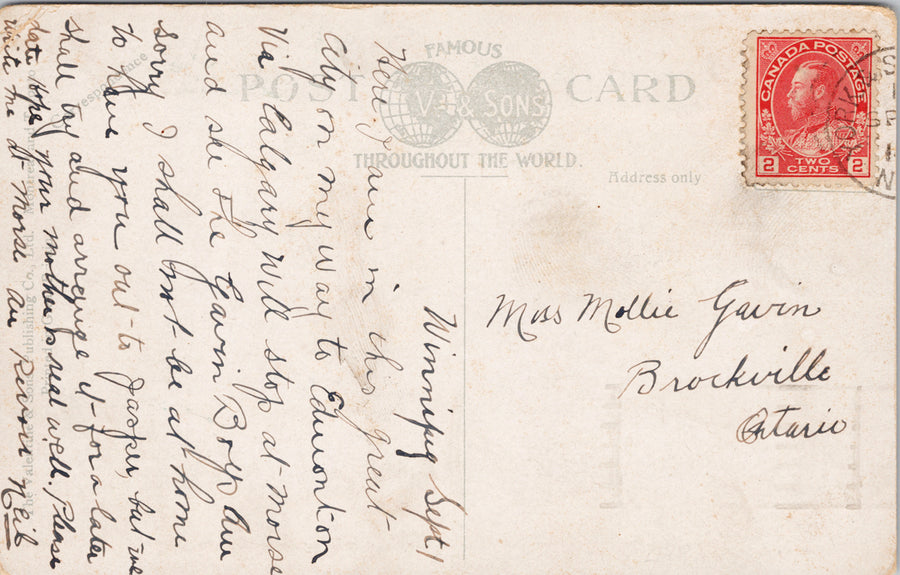 FAMOUS
POST CARD
& SONS
THROUGHOUT THE WORLD.
Address only
CANADA POSTAGE
2 TWO CENTS 2
Miss Mollie Gavin
Brockville
Ontario
Winnipeg Sept 1
Here I am in this great
City on my way to Edmonton
Via Calgary Will stop at Morse
and see the Gavin Boys am
Sorry I shall not be at home
to have you out to Jasper but we
shall try and arrange it for a later
date Hope your mother is real well. Please
write me at Morse au Revoir Neil
The Valentine & Sons Publishing Co., Ltd.